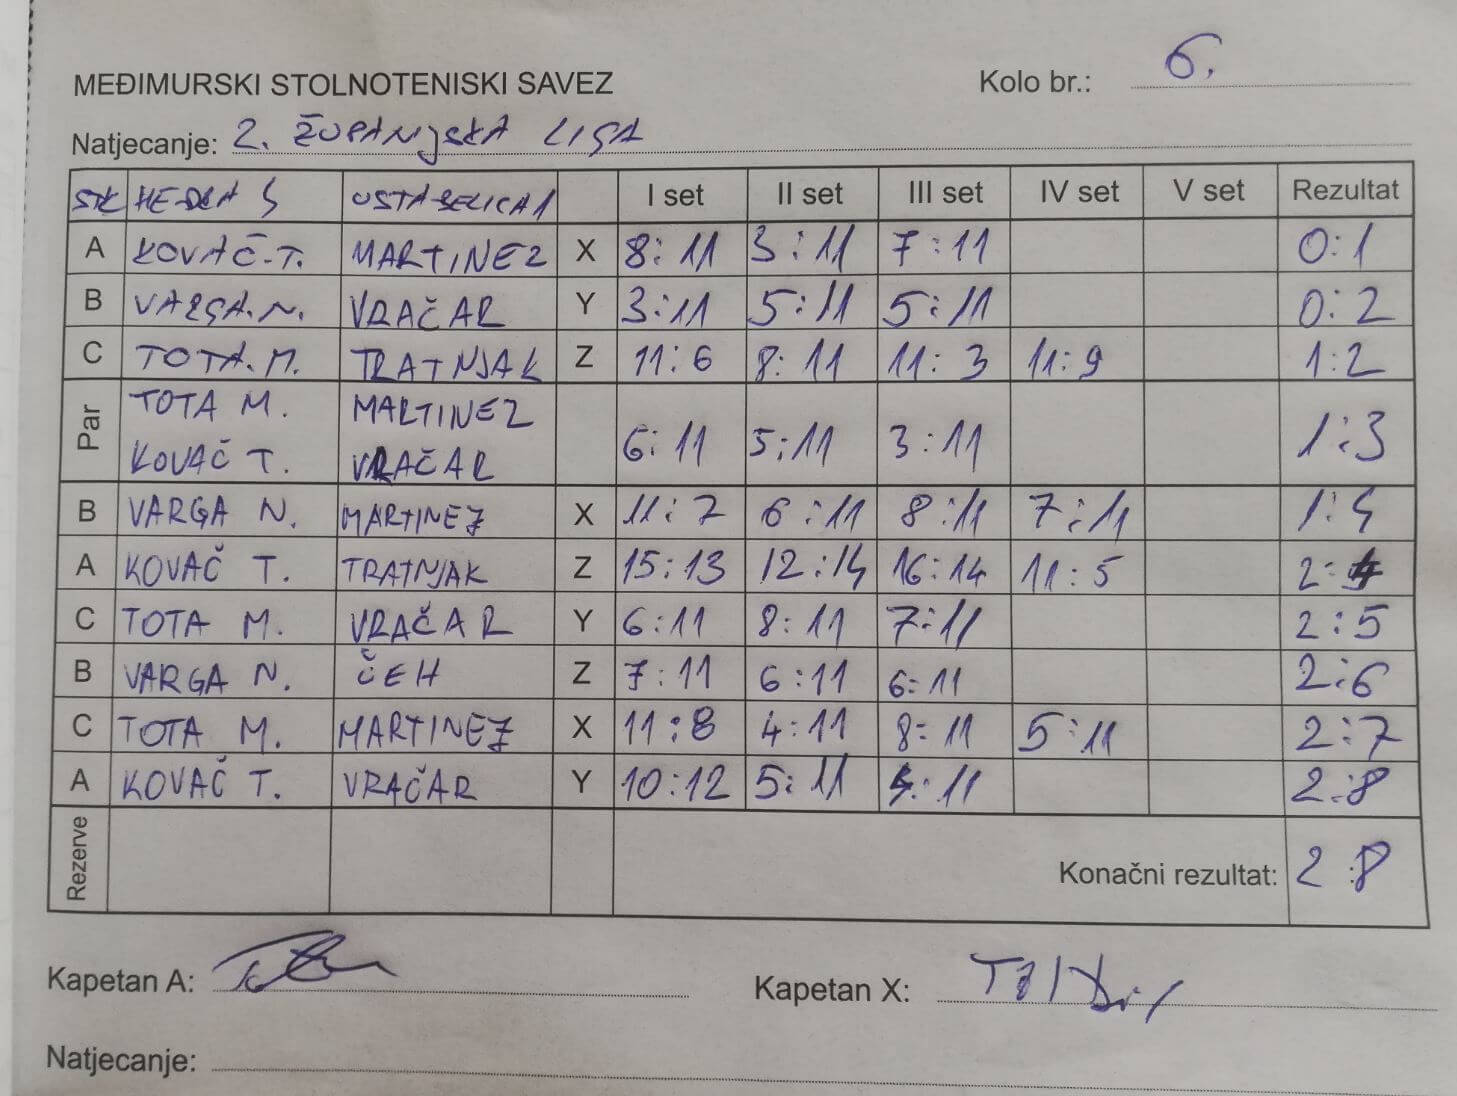 MEĐIMURSKI STOLNOTENISKI SAVEZ Kolo br.: 6.
Natjecanje: 2. ŽUPANJSKA LIGA
I set II set III set IV set V set Rezultat
A KOVAČ T. MARTINEZ X 8:11 3:11 7:11 0:1
B VARGA.N. VRAČAR Y 3:11 5:11 5:11 0:2
C TOTA.M. TRATNJAK Z 11:6 8:11 11:3 11:9 1:2
Par TOTA M. MARTINEZ
KOVAČ T. VRAČAR 6:11 5:11 3:11 1:3
B VARGA N. MARTINEZ X 11:7 6:11 8:11 7:11 1:4
A KOVAČ T. TRATNJAK Z 15:13 12:14 16:14 11:5 2:4
C TOTA M. VRAČAR Y 6:11 8:11 7:11 2:5
B VARGA N. ČEH Z 7:11 6:11 6:11 2:6
C TOTA M. MARTINEZ X 11:8 4:11 8:11 5:11 2:7
A KOVAČ T. VRAČAR Y 10:12 5:11 4:11 2:8
Rezerve Konačni rezultat: 2:8
Kapetan A: Kapetan X:
Natjecanje: